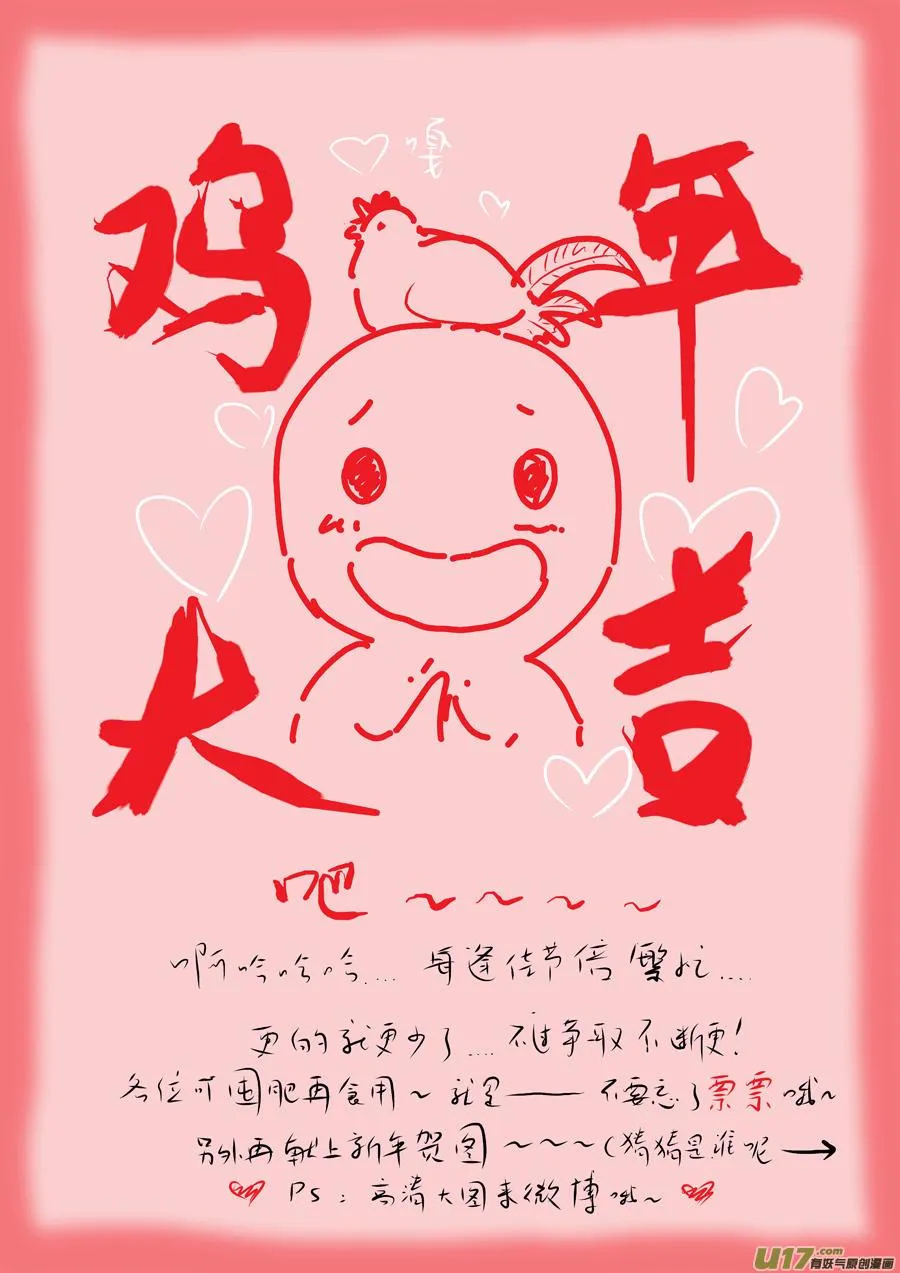 嘎
鸡年
大吉
吧～～～～
啊哈哈哈.... 每逢佳节倍繁忙....
更的就更少了.... 不过争取不断更!
各位可囤肥再食用～就是——不要忘了票票哦～
另外再献上新年贺图～～～(猜猜是谁呢→
PS:高清大图来微博哦～
U17.com
有妖气原创漫画